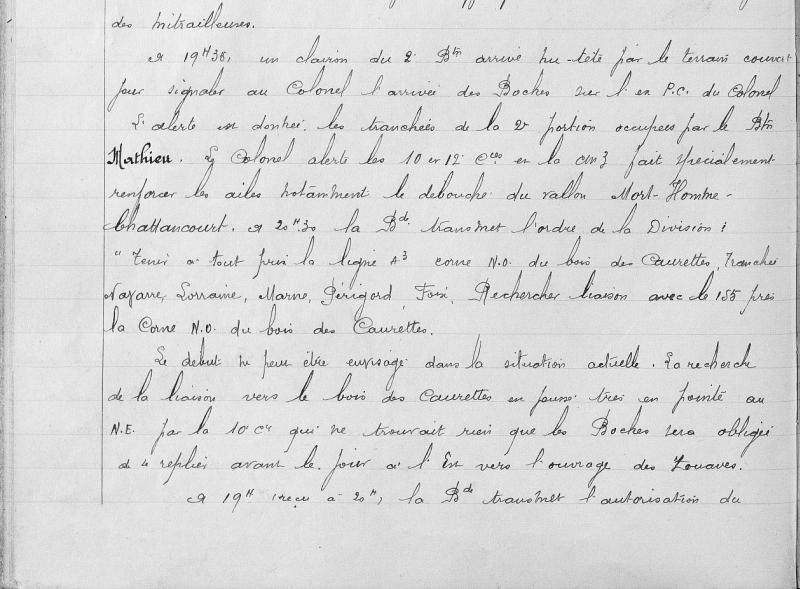 des mitrailleuses.
A 19H30, un clairon du 2e Btn arrive nu-tête par le terrain couvert
pour signaler au Colonel l'arrivée des Boches sur l'ex P.C. du Colonel
L'alerte est donnée, les tranchées de la 2e portion occupées par le Btn
Mathieu. Le Colonel alerte les 10 et 12e Cies et la CM3 fait spécialement
renforcer les ailes notamment le débouché du vallon Mort-Homme-
Chattancourt. A 20H.30 la Bde transmet l'ordre de la Division :
"Tenir à tout prix la ligne A3 corne N.O. du bois des Caurettes, Tranchée
Navarre, Lorraine, Marne, Périgord, Foix, Rechercher liaison avec le 155 près
la Corne N.O. du bois des Caurettes.
Le début ne peut être envisagé dans la situation actuelle. La recherche
de la liaison vers le bois des Caurettes en poussé très en pointe au
N.E. par la 10e Cie qui ne trouvait rien que les Boches sera obligée
de se replier avant le jour à l'Est vers l'ouvrage des Zouaves.
A 19H (reçu à 20H), la Bde transmet l'autorisation du